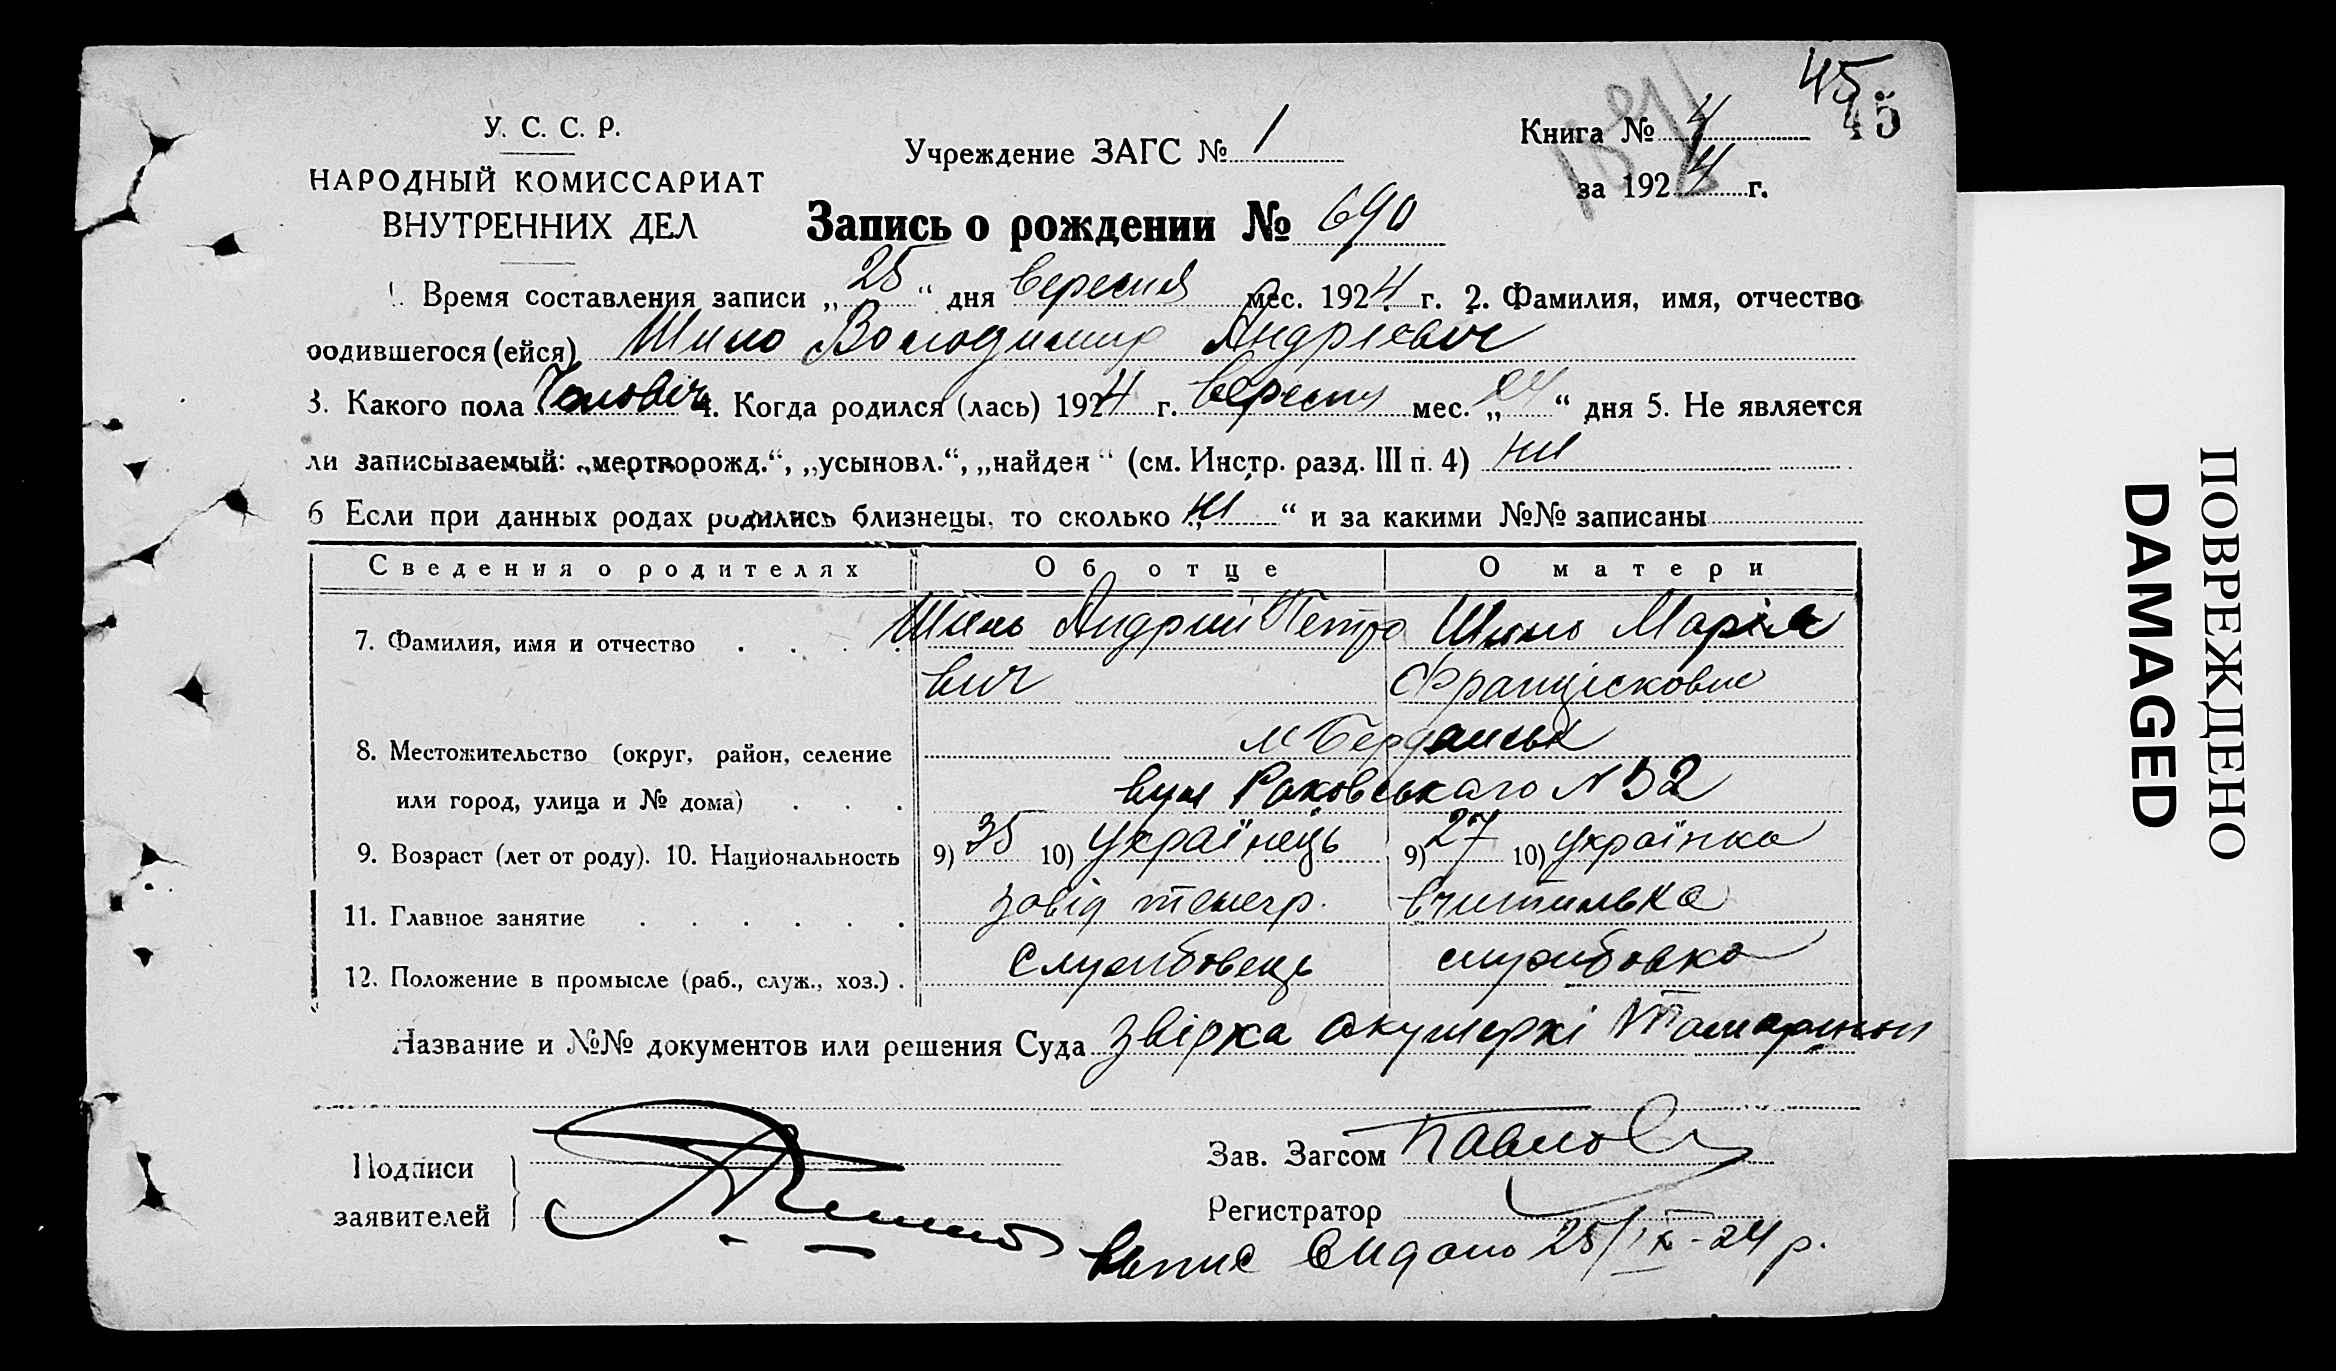 45
45
У. С. С. Р.
НАРОДНЫЙ КОМИССАРИАТ
ВНУТРЕННИХ ДЕЛ
Учреждение ЗАГС № 1
Книга № 4
за 1924 г.
Запись о рождении № 690
1. Время составления записи „25“ дня вересня мес. 1924 г. 2. Фамилия, имя, отчество
родившегося (ейся) Шило Володимир Андрієвич
3. Какого пола Чоловіч 4. Когда родился (лась) 1924 г. вересня мес. „24“ дня 5. Не является
ли записываемый: „мертворожд.“, „усыновл.“, „найден“ (см. Инстр. разд. III п. 4) ні
6 Если при данных родах родились близнецы, то сколько „ні“ и за какими №№ записаны
Сведения о родителях Об отце О матери
7. Фамилия, имя и отчество . . . . Шило Андрий Петро Шило Марія
вич Францісковна
8. Местожительство (округ, район, селение м Бердянськ
или город, улица и № дома) . . . вул Раковськаго N 52
9. Возраст (лет от роду). 10. Национальность 9) 35 10) українець 9) 27 10) українка
11. Главное занятие . . . . . . завід телегр. вчителька
12. Положение в промысле (раб., служ., хоз.) . службовець службовка
Название и №№ документов или решения Суда звірка акушеркі
Подписи
заявителей
Зав. Загсом Павло
Регистратор
Випис видано 25/IX-24 р.
ПОВРЕЖДЕНО
DAMAGED